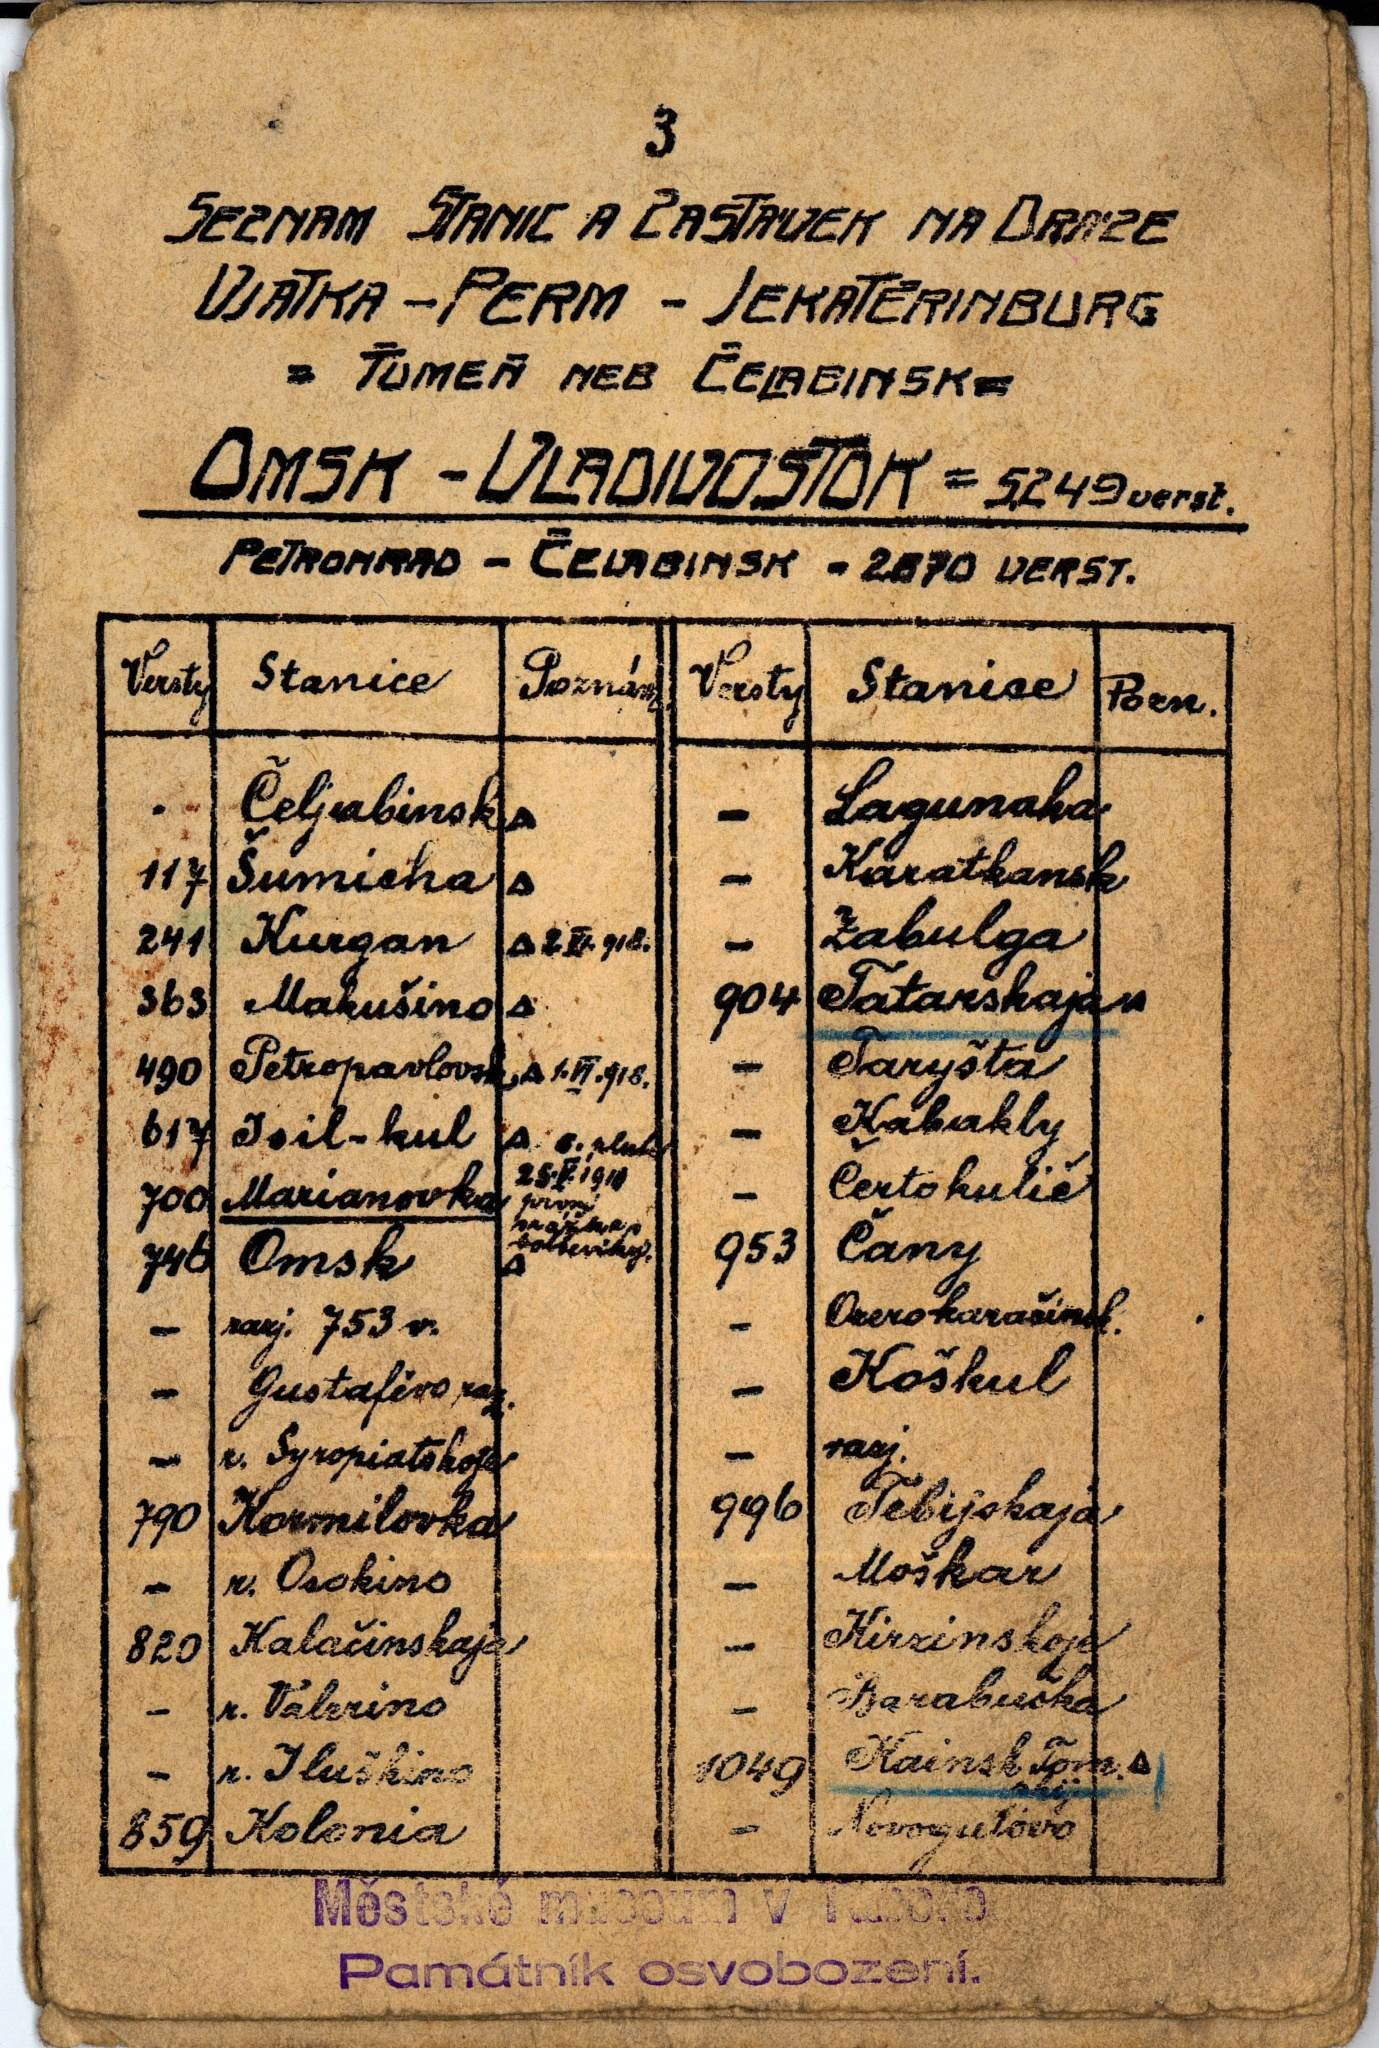 3
SEZNAM STANIC A ZASTÁVEK NA DRÁZE
VJATKA – PERM – JEKATĚRINBURG
= ŤUMEŇ NEB ČELABINSK =
OMSK – VLADIVOSTOK = 5249 verst.
PETROHRAD – ČELABINSK – 2870 VERST.
Versty Stanice Poznám. Versty Stanice Pozn.
- Čeljabinsk △ – Lagunaka
117 Šumicha △ – Karatkansk
241 Kurgan △ 2.VI.918. – Žabulga
363 Makušino △ 904 Tatarskaja △
490 Petropavlovsk △ 1.VI.918. – Taryšta
617 Isil-kul △ – Kabakly
6. pluk
700 Marianovka 25.V.1918 – Čertokulič
první
srážka s
bolševiky.
746 Omsk △ 953 Čany
– razj. 753 v. – Ozerokarašinsk.
– Gustafivo raz. – Koškul
– r. Syropiatskoje – razj.
790 Kormilovka 996 Tebijskaja
– r. Osokino – Moškar
820 Kalačinskaja – Kirzinskoje
– r. Valerino – Barabuška
– r. Iluškino 1049 Kainsk Tom. △
skij
859 Kolonia – Novogutovo
Městské museum v Táboře
Památník osvobození.